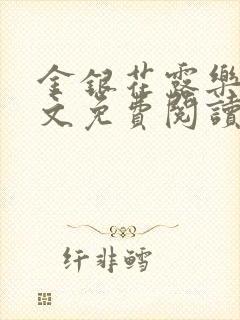 金銀花露樂
文免費閱讀
纤非鳕